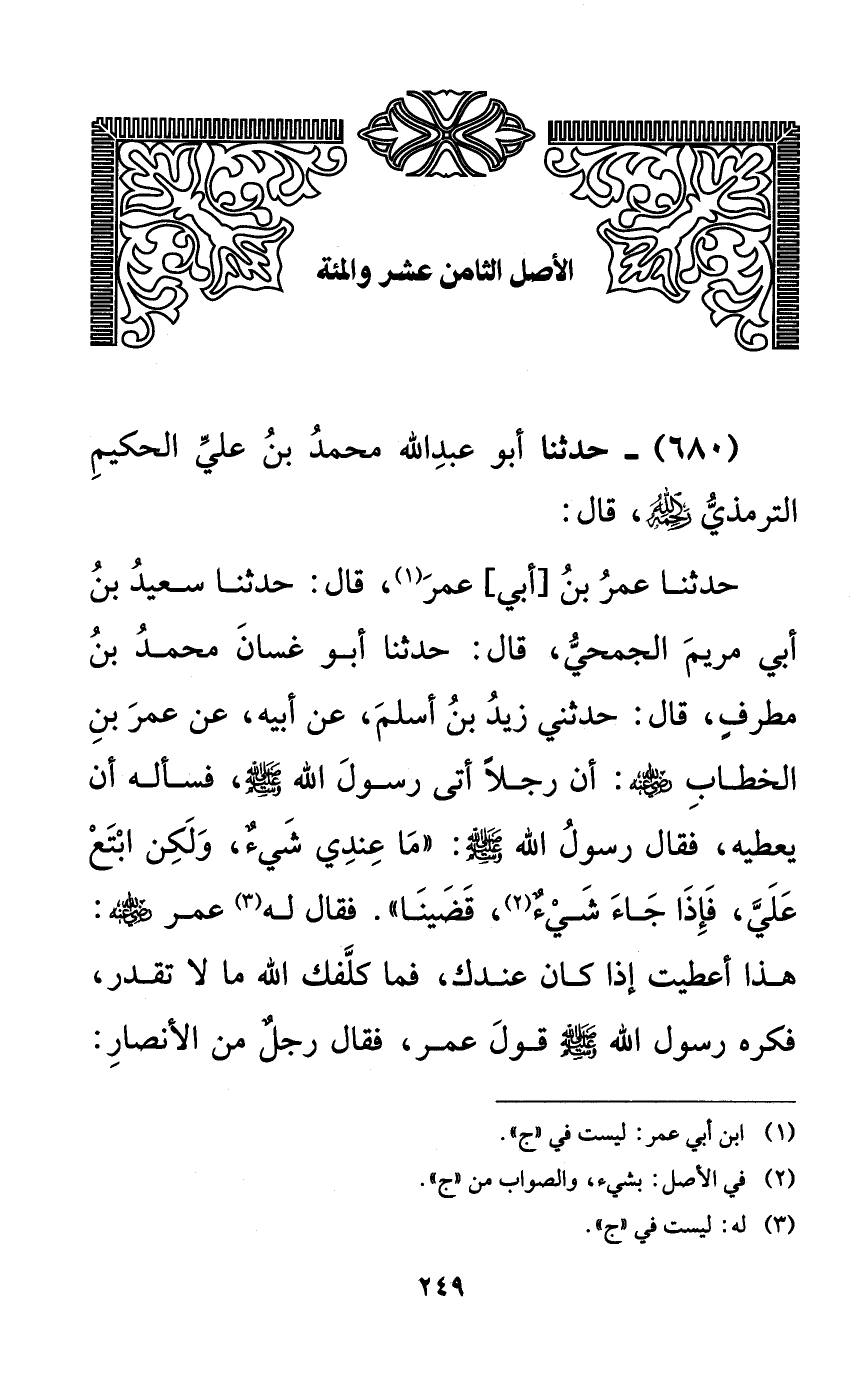 الأصل الثامن عشر والمئة
(٦٨٠) ـ حدثنا أبو عبدِالله محمدُ بنُ عليٍّ الحكيمِ
الترمذيُّ رحمه الله، قال:
حدثنا عمرُ بنُ [أبي] عمرَ(١)، قال: حدثنا سعيدُ بنُ
أبي مريمَ الجمحيُّ، قال: حدثنا أبو غسانَ محمدُ بنُ
مطرفٍ، قال: حدثني زيدُ بنُ أسلمَ، عن أبيه، عن عمرَ بنِ
الخطابِ رضي الله عنه: أن رجلاً أتى رسولَ الله ﷺ، فسأله أن
يعطيه، فقال رسولُ الله ﷺ: «مَا عِندِي شَيءٌ، وَلَكِن ابْتَعْ
عَلَيَّ، فَإِذَا جَاءَ شَيْءٌ(٢)، قَضَينَا». فقال له(٣) عمر رضي الله عنه:
هذا أعطيت إذا كان عندك، فما كلَّفك الله ما لا تقدر،
فكره رسول الله ﷺ قولَ عمر، فقال رجلٌ من الأنصارِ:
(١) ابن أبي عمر: ليست في «ج».
(٢) في الأصل: بشيء، والصواب من «ج».
(٣) له: ليست في «ج».
٢٤٩